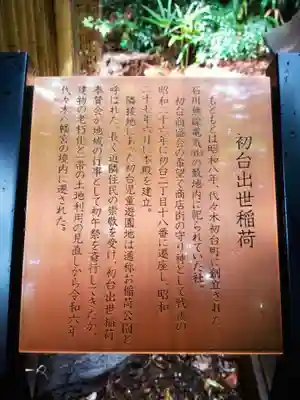 初台出世稲荷
もともとは昭和八年、代々木初台町に創立された
石川無線電気㈱の敷地内に祀られていた社。
初台商盛会の希望で商店街の守り神として戦後の
昭和二十六年に初台二丁目十八番に遷座し、昭和
二十七年六月に本殿を建立。
隣接地にあった初台児童遊園地は通称お稲荷公園と
呼ばれた。長く近隣住民の崇敬を受け、初台出世稲荷
奉賛会が地域の行事として初午祭を斎行してきたが、
建物の老朽化と一帯の土地利用の見直しから令和六年、
代々木八幡宮の境内に遷された。